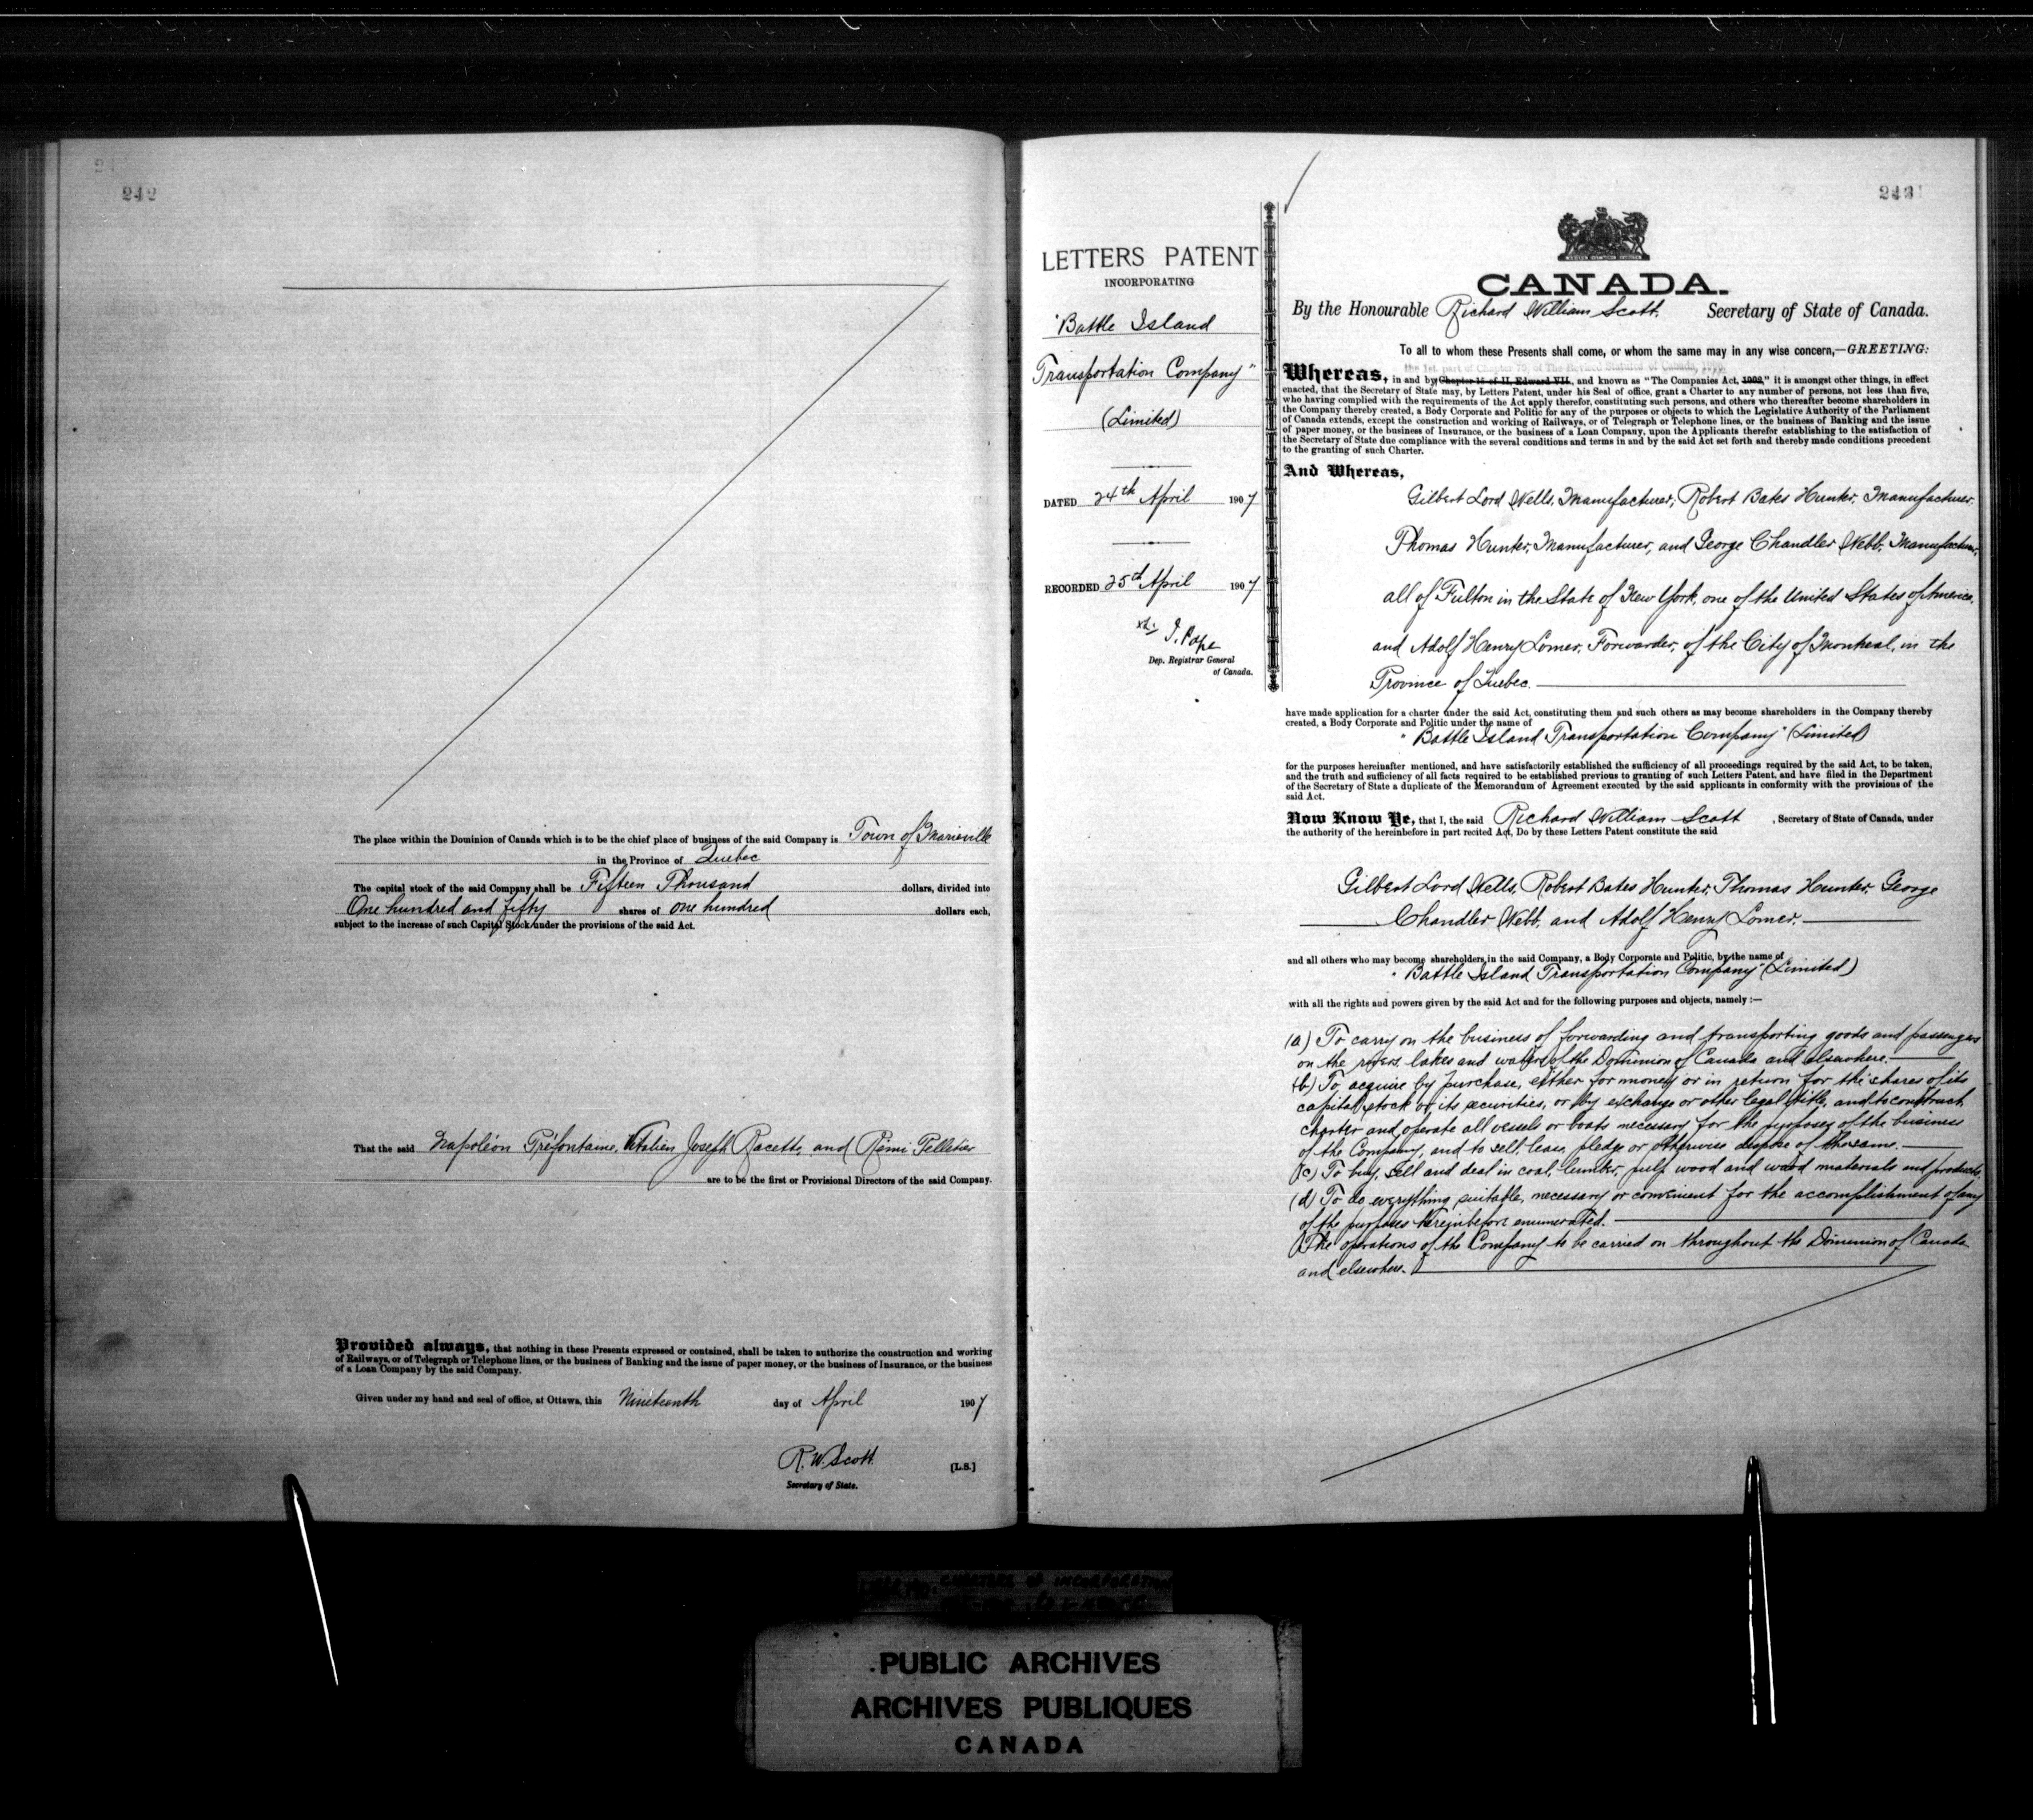 242
The place within the Dominion of Canada which is to be the chief place of business of the said Company is Town of Marieville
in the Province of Quebec
The capital stock of the said Company shall be Fifteen Thousand dollars, divided into
One hundred and fifty shares of one hundred dollars each,
subject to the increase of such Capital Stock under the provisions of the said Act.
That the said Napoléon Préfontaine, Vitalien Joseph Racette, and Rémi Pelletier
are to be the first or Provisional Directors of the said Company.
Provided always, that nothing in these Presents expressed or contained, shall be taken to authorize the construction and working
of Railways, or of Telegraph or Telephone lines, or the business of Banking and the issue of paper money, or the business of Insurance, or the business
of a Loan Company by the said Company.
Given under my hand and seal of office, at Ottawa, this Nineteenth day of April 1907
R. W. Scott.
[L.S.]
Secretary of State.
243
LETTERS PATENT
INCORPORATING
"Battle Island
Transportation Company"
(Limited)
DATED 24th April 1907
RECORDED 25th April 1907
J. Pope
Dep. Registrar General
of Canada.
CANADA.
By the Honourable Richard William Scott, Secretary of State of Canada.
To all to whom these Presents shall come, or whom the same may in any wise concern,—GREETING:
the 1st. part of Chapter 79, of The Revised Statutes of Canada,
Whereas, in and by Chapter 15 of II, Edward VII., and known as "The Companies Act, 1902," it is amongst other things, in effect
enacted, that the Secretary of State may, by Letters Patent, under his Seal of office, grant a Charter to any number of persons, not less than five,
who having complied with the requirements of the Act apply therefor, constituting such persons, and others who thereafter become shareholders in
the Company thereby created, a Body Corporate and Politic for any of the purposes or objects to which the Legislative Authority of the Parliament
of Canada extends, except the construction and working of Railways, or of Telegraph or Telephone lines, or the business of Banking and the issue
of paper money, or the business of Insurance, or the business of a Loan Company, upon the Applicants therefor establishing to the satisfaction of
the Secretary of State due compliance with the several conditions and terms in and by the said Act set forth and thereby made conditions precedent
to the granting of such Charter.
And Whereas,
Gilbert Lord Wells, Manufacturer, Robert Bates Hunter, Manufacturer,
Thomas Hunter, Manufacturer, and George Chandler Webb, Manufacturer,
all of Fulton in the State of New York, one of the United States of America,
and Adolf Henry Lomer, Forwarder, of the City of Montreal, in the
Province of Quebec.
have made application for a charter under the said Act, constituting them and such others as may become shareholders in the Company thereby
created, a Body Corporate and Politic under the name of
"Battle Island Transportation Company" (Limited)
for the purposes hereinafter mentioned, and have satisfactorily established the sufficiency of all proceedings required by the said Act, to be taken,
and the truth and sufficiency of all facts required to be established previous to granting of such Letters Patent, and have filed in the Department
of the Secretary of State a duplicate of the Memorandum of Agreement executed by the said applicants in conformity with the provisions of the
said Act.
Now Know Ye, that I, the said Richard William Scott, Secretary of State of Canada, under
the authority of the hereinbefore in part recited Act, Do by these Letters Patent constitute the said
Gilbert Lord Wells, Robert Bates Hunter, Thomas Hunter, George
Chandler Webb, and Adolf Henry Lomer.
and all others who may become shareholders in the said Company, a Body Corporate and Politic, by the name of
"Battle Island Transportation Company" (Limited)
with all the rights and powers given by the said Act and for the following purposes and objects, namely :—
(a) To carry on the business of forwarding and transporting goods and passengers
on the rivers, lakes and waters of the Dominion of Canada and elsewhere.
(b) To acquire by purchase, either for money or in return for the shares of its
capital stock or its securities, or by exchange or other legal title, and to construct,
charter and operate all vessels or boats necessary for the purposes of the business
of the Company, and to sell, lease, pledge or otherwise dispose of the same.
(c) To buy, sell and deal in coal, lumber, pulp wood and wood materials and products.
(d) To do everything suitable, necessary or convenient for the accomplishment of any
of the purposes hereinbefore enumerated.
The operations of the Company to be carried on throughout the Dominion of Canada
and elsewhere.
CHARTERS OF INCORPORATION
PUBLIC ARCHIVES
ARCHIVES PUBLIQUES
CANADA